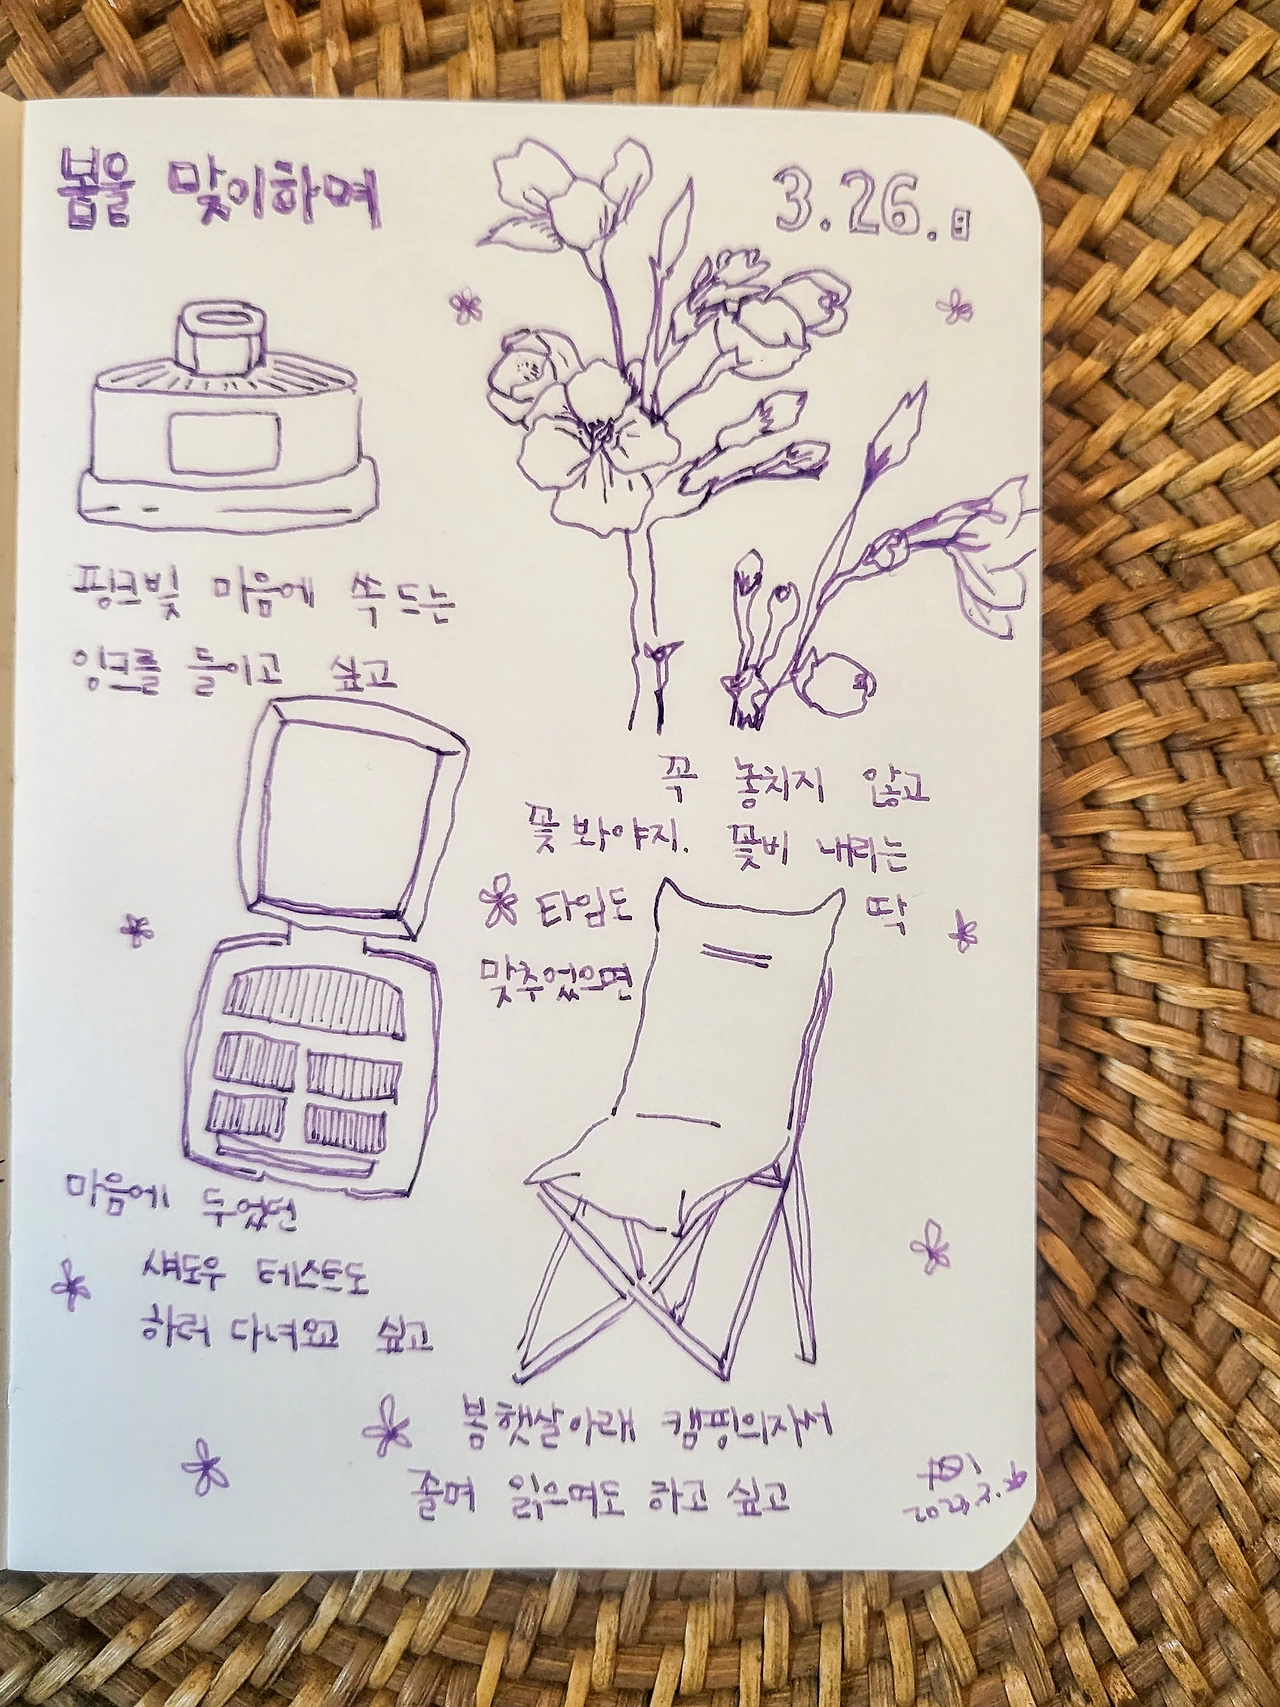 봄을 맞이하며
3.26.
핑크빛 마음에 쏙 드는
잉크를 들이고 싶고
꼭 놓치지 않고
꽃 봐야지. 꽃비 내리는
타임도 딱
맞추었으면
마음에 두었던
섀도우 테스트도
하러 다녀오고 싶고
봄햇살아래 캠핑의자서
졸며 읽으며도 하고 싶고